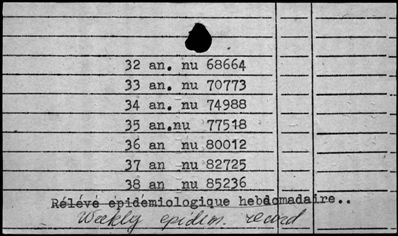 32 an. nu 68664
33 an. nu 70773
34 an. nu 74988
35 an.nu 77518
36 an nu 80012
37 an nu 82725
38 an nu 85236
Rélévé épidémiologique hebdomadaire..
Weekly epidem. record